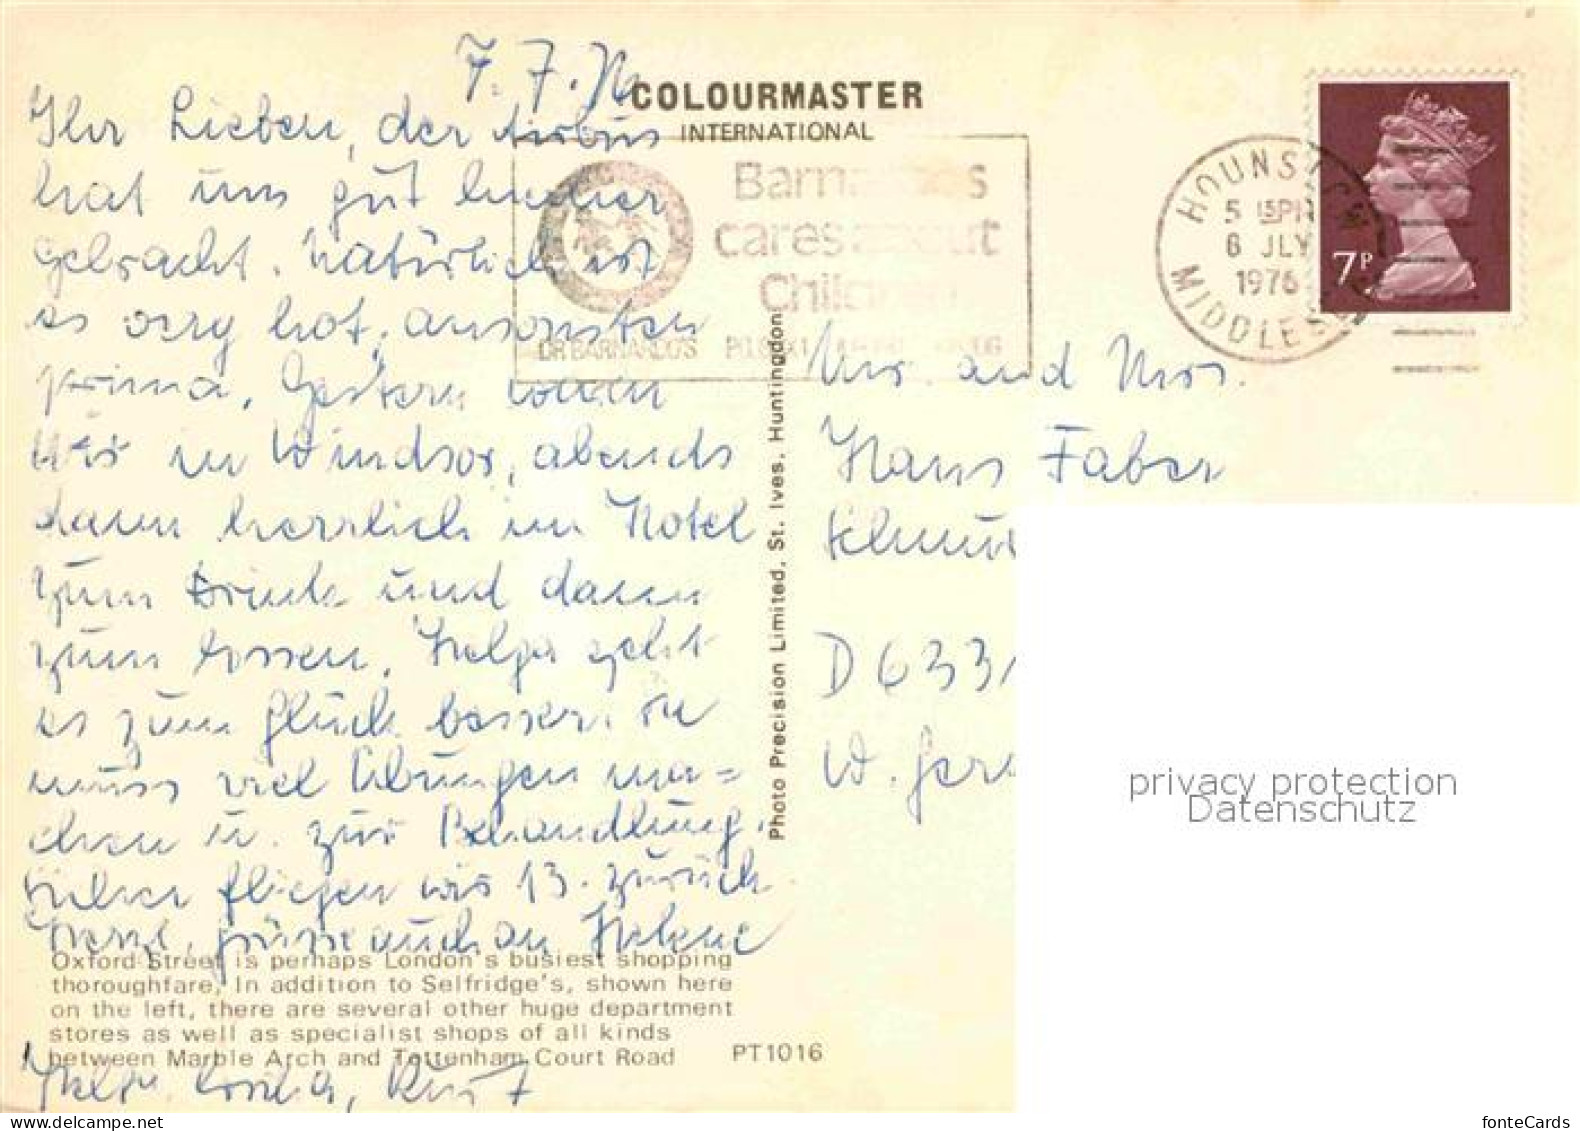 7.7.76
COLOURMASTER
INTERNATIONAL
Ihr Lieben, der Airbus
hat uns gut hierher
gebracht. Natürlich ist
es very hot, ansonsten
prima. Gestern waren
wir in Windsor, abends
dann herrlich im Hotel
zum Drink und dann
zum Essen. Helga geht
es zum Glück besser. Sie
muss viel Übungen ma=
chen u. zur Behandlung.
fliegen wir 13. zurück
Herzl. grüsse auch an Helene
Helga, Kurt
Barnardo's
cares about
Children
DR BARNARDO'S
HOUNSLOW
5 15PM
6 JLY
1976
MIDDLESEX
7P
Mr. and Mrs.
Hans Faber
D 633
W. Ger
Photo Precision Limited, St. Ives, Huntingdon
Oxford Street is perhaps London's busiest shopping
thoroughfare, In addition to Selfridge's, shown here
on the left, there are several other huge department
stores as well as specialist shops of all kinds
between Marble Arch and Tottenham Court Road
PT1016
privacy protection
Datenschutz
fonteCards